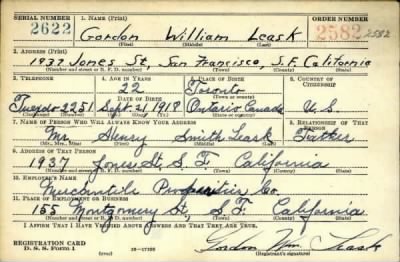 SERIAL NUMBER 1. NAME (Print) ORDER NUMBER
2622 Gordon William Leask 2582 2582
(First) (Middle) (Last)
2. ADDRESS (Print)
1937 Jones St, San Francisco, S.F. California
(Number and street or R. F. D. number) (Town) (County) (State)
3. TELEPHONE 4. AGE IN YEARS 5. PLACE OF BIRTH 6. COUNTRY OF CITIZENSHIP
22 Toronto
DATE OF BIRTH (Town or county)
Tuxedo 2251 Sept. 21, 1918 Ontario Canada U.S.
(Exchange) (Number) (Mo.) (Day) (Yr.) (State or country)
7. NAME OF PERSON WHO WILL ALWAYS KNOW YOUR ADDRESS 8. RELATIONSHIP OF THAT PERSON
Mr. Henry Smith Leask Father
(Mr., Mrs., Miss) (First) (Middle) (Last)
9. ADDRESS OF THAT PERSON
1937 Jones St. S.F. California
(Number and street or R. F. D. number) (Town) (County) (State)
10. EMPLOYER'S NAME
Mercantile Co.
11. PLACE OF EMPLOYMENT OR BUSINESS
155 Montgomery St, S.F. California
(Number and street or R. F. D. number) (Town) (County) (State)
I AFFIRM THAT I HAVE VERIFIED ABOVE ANSWERS AND THAT THEY ARE TRUE.
REGISTRATION CARD Gordon Wm. Leask
D. S. S. Form 1 (over) (Registrant's signature)